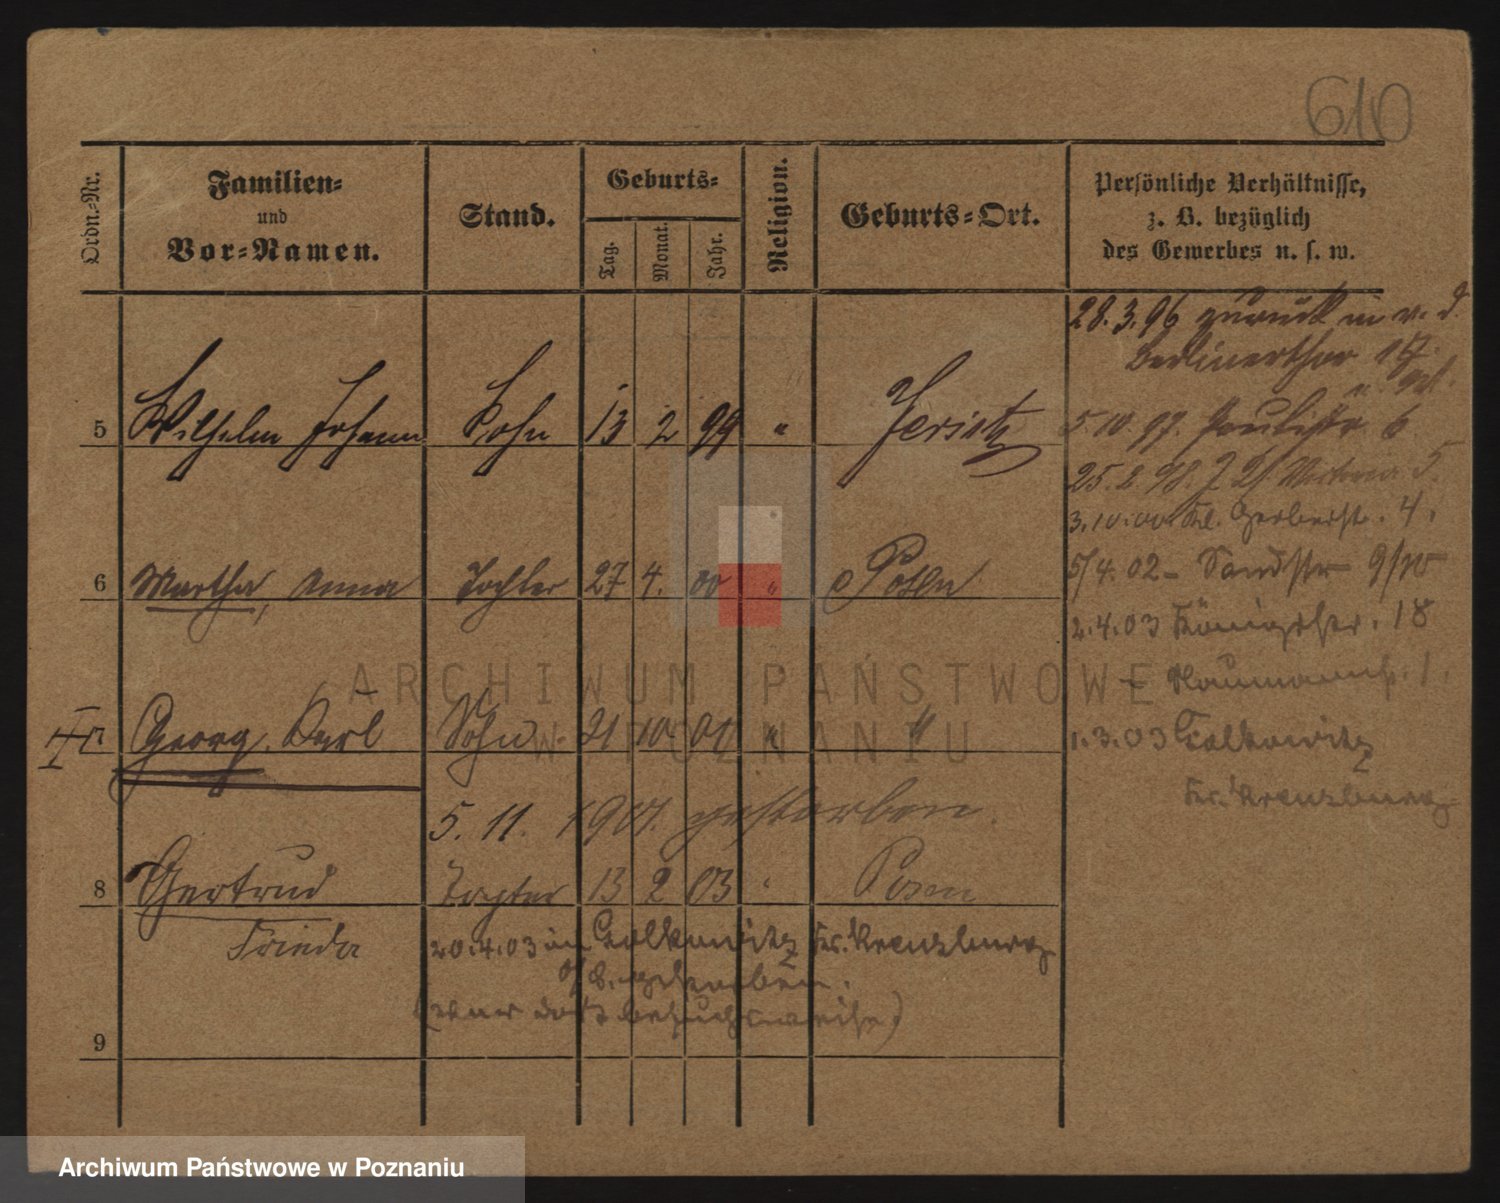 610
Ordn.-Nr.
Familien-
und
Vor-Namen.
Stand.
Geburts-
Tag.
Monat.
Jahr.
Religion.
Geburts-Ort.
Persönliche Verhältnisse,
z. B. bezüglich
des Gewerbes u. s. w.
28.3.96 zurück in v. d.
Berlinerthor 17
5 Wilhelm Johann Sohn 13 2 99 " Jersitz
5.10.97. Paulistr. 6
25.2.98. Victoria 5.
3.10.00. Kl. Gerberstr. 4.
6 Martha, Anna Tochter 27 4. 00 " Posen
5/4.02 - Sandstr 9/10
2.4.03 Königstr. 18
Naumannstr. 1.
7 Georg, Karl Sohn 21 10. 01 " "
1.3.03 Golkowitz
Kr. Kreuzburg
5. 11. 1901. gestorben.
8 Gertrud Tochter 13 2 03 " Posen
Frieda
20.4.03 in Golkowitz Kr. Kreuzburg
O/S. gestorben.
(war dort besuchsweise)
9
ARCHIWUM PAŃSTWOWE
W POZNANIU
Archiwum Państwowe w Poznaniu